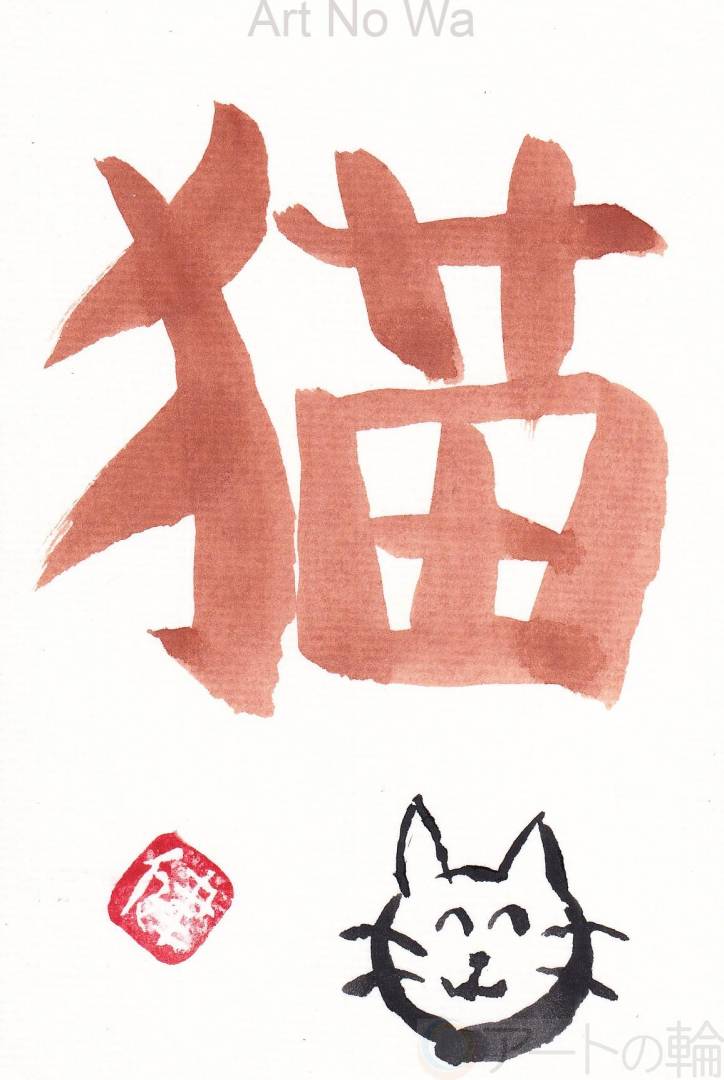 Art No Wa
猫
アートの輪